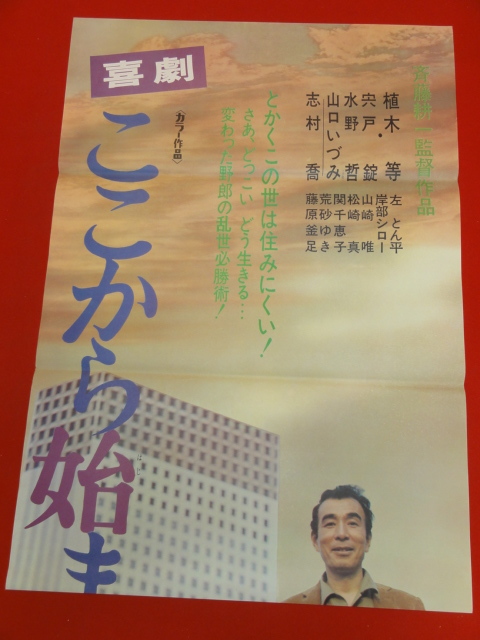 斎藤耕一監督作品
植木等
宍戸錠
水野哲
山口いづみ
志村喬
左とん平
岸部シロー
山崎唯
松崎真
関千恵子
荒砂ゆき
藤原釜足
とかくこの世は住みにくい！
さあ、どっこい どう生きる…
変わった野郎の乱世必勝術！
喜劇
〈カラー作品〉
ここから始ま
はじ